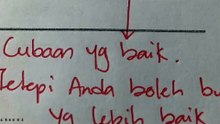 Cubaan yg baik.
Tetapi Anda boleh bu
yg lebih baik